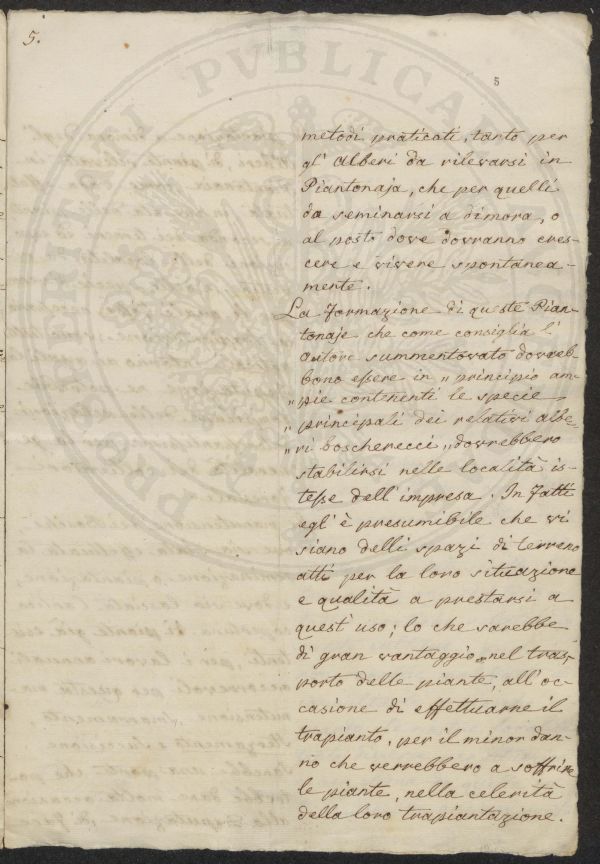 5.
5
metodi praticati, tanto per
gl' alberi da rilevarsi in
Piantonaja, che per quelli
da seminarsi a dimora, o
al posto dove dovranno cres-
cere e vivere spontanea-
mente.
La Formazione di queste Pian-
tonaje che come consiglia l'
autore summentovato dovreb-
bono essere in „ principio am-
„ pie contenenti le specie
„ principali dei relativi albe-
„ ri boscherecci „ dovrebbero
stabilirsi nelle località is-
tesse dell' impresa. In fatti
egl' è presumibile che vi
siano delli spazi di terreno
atti per la loro situazione
e qualità a prestarsi a
quest' uso; lo che sarebbe
di gran vantaggio nel tras-
porto delle piante, all' oc-
casione di effettuarne il
trapianto, per il minor dan-
no che verrebbero a soffrire
le piante, nella celerità
della loro trapiantazione.